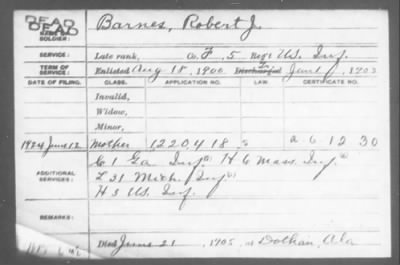 DEAD
DEAD
NAME OF SOLDIER: Barnes, Robert J.
SERVICE: Late rank, Co. F, 5 Reg't U.S. Inf.
TERM OF SERVICE: Enlisted Aug 18, 1900 Discharged June 1, 1903
DATE OF FILING. CLASS. APPLICATION NO. LAW. CERTIFICATE NO.
Invalid,
Widow,
Minor,
1924 June 12 Mother 1220418
ADDITIONAL SERVICES: C 1 Ga Inf H 6 Mass. Inf
L 31 Mich. Inf
H 3 U.S. Inf.
REMARKS:
Died June 21, 1905, at Dothan, Ala